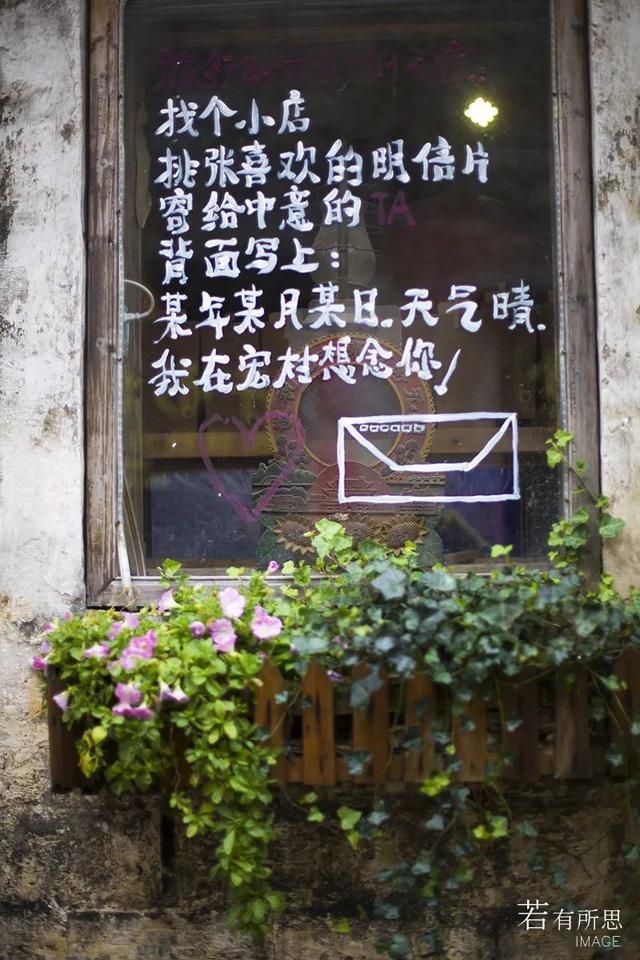 找个小店
挑张喜欢的明信片
寄给中意的TA
背面写上：
某年某月某日.天气晴.
我在宏村想念你！
若有所思
IMAGE